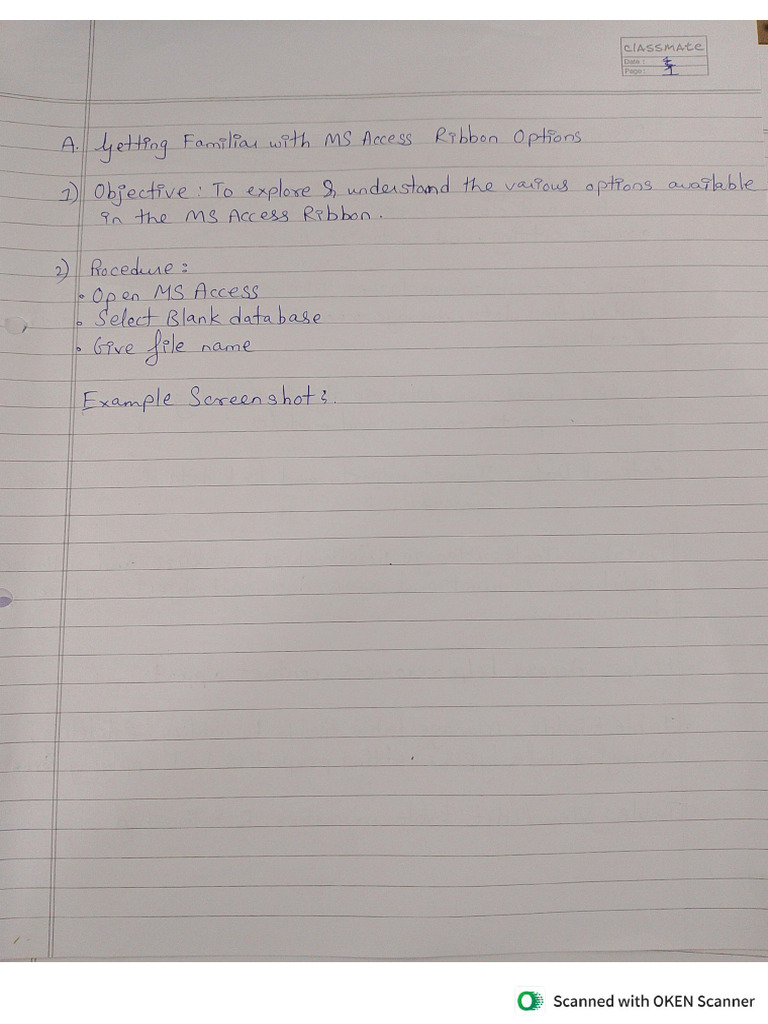 classmate
Date :
Page : 1
A. Getting Familiar with MS Access Ribbon Options
1) Objective : To explore & understand the various options available
in the MS Access Ribbon.
2) Procedure :
• Open MS Access
• Select Blank database
• Give file name
Example Screenshot :
Scanned with OKEN Scanner